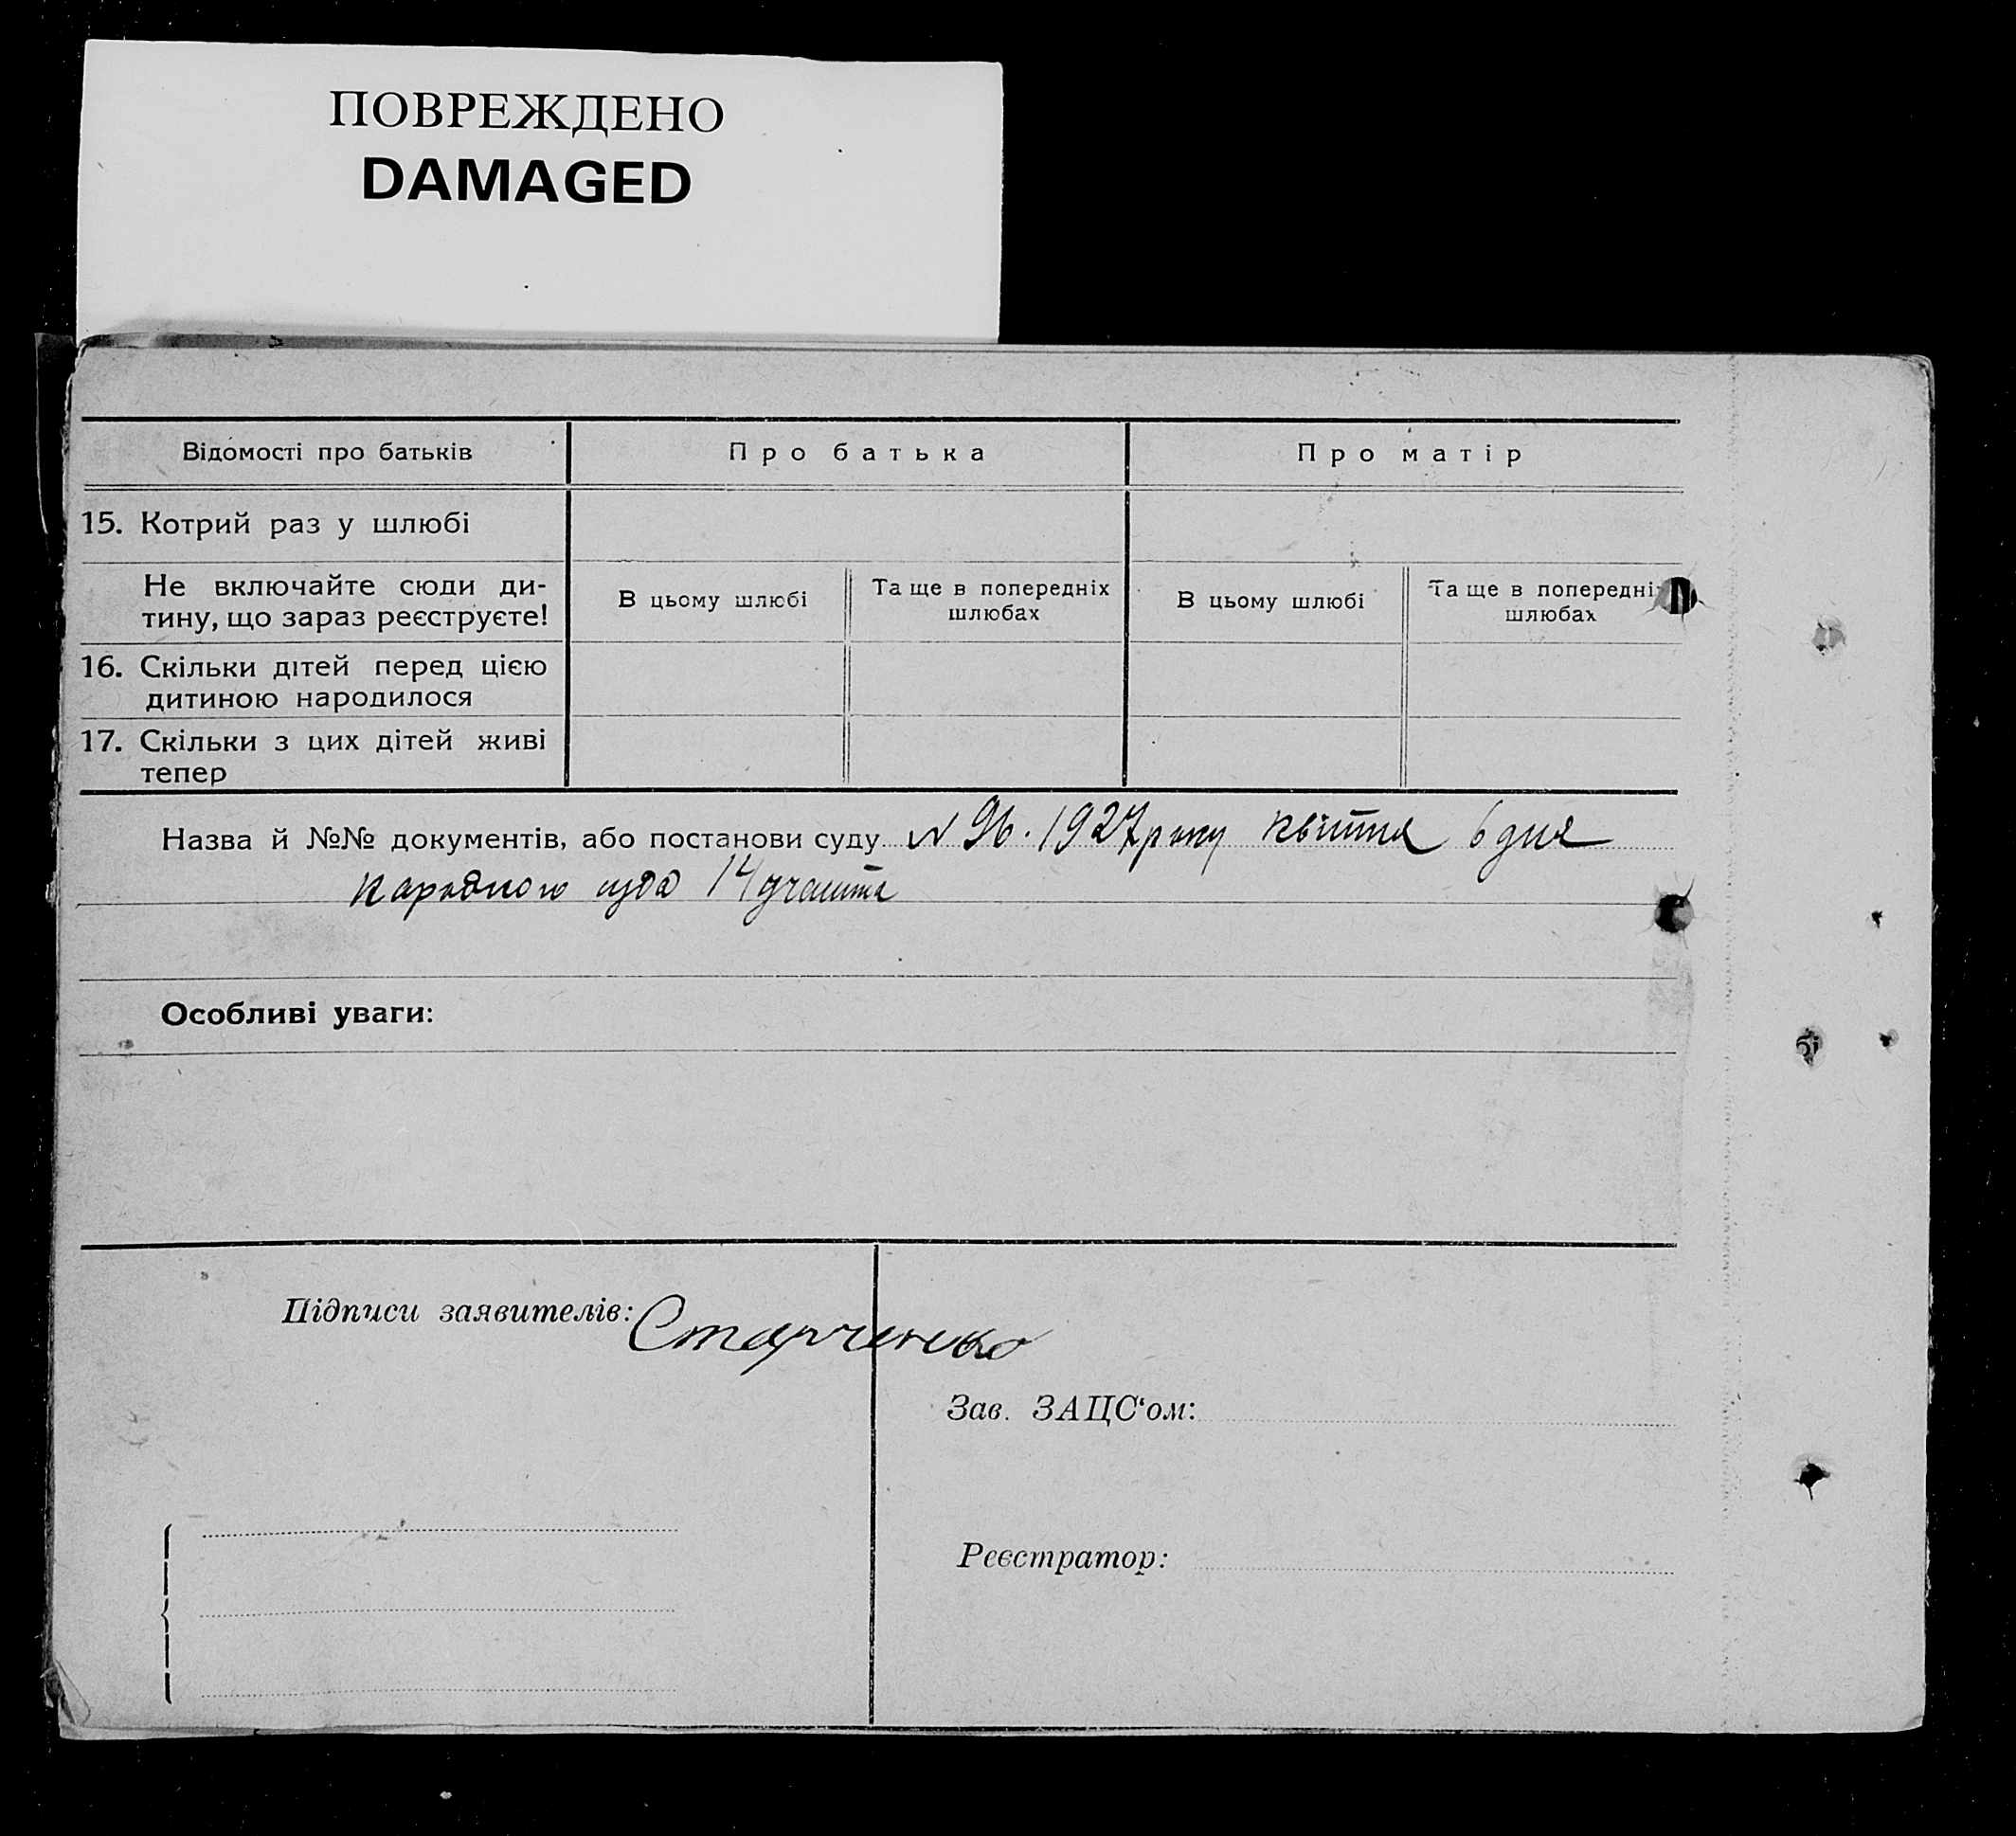 ПОВРЕЖДЕНО
DAMAGED
Відомості про батьків
Про батька
Про матір
15. Котрий раз у шлюбі
Не включайте сюди ди-
тину, що зараз реєструєте!
В цьому шлюбі
Та ще в попередніх
шлюбах
В цьому шлюбі
Та ще в попередні
шлюбах
16. Скільки дітей перед цією
дитиною народилося
17. Скільки з цих дітей живі
тепер
Назва й №№ документів, або постанови суду N 96. 1927 року квітня 6 дня
народного суда 14 участка
Особливі уваги:
Підписи заявителів: Старченко
Зав. ЗАЦС‘ом:
Реєстратор: